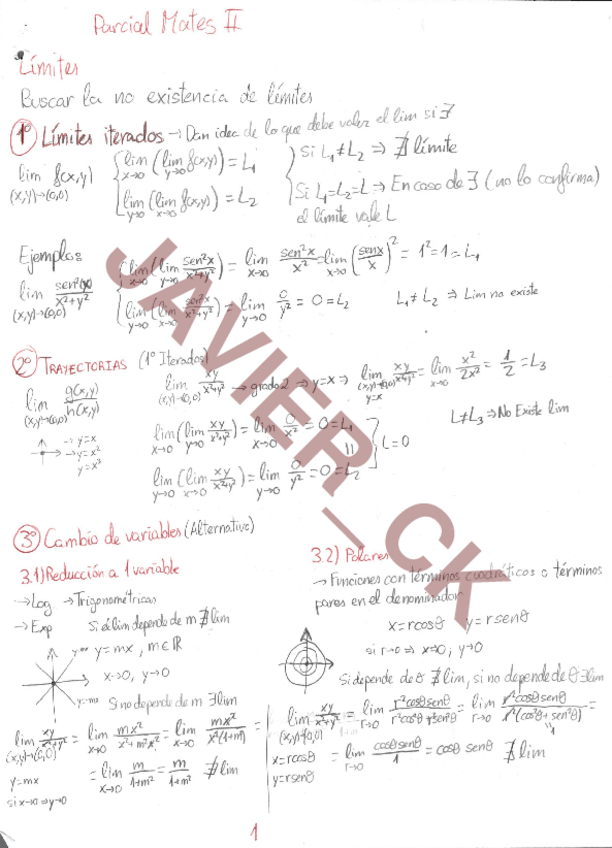 Parcial Mates II
Límites
Buscar la no existencia de límites
1º Límites iterados → Dan idea de lo que debe valer el lim si ∃
lim f(x,y) (x,y)→(0,0) { lim x→0 (lim y→0 f(x,y)) = L₁
lim y→0 (lim x→0 f(x,y)) = L₂
Si L₁≠L₂ ⇒ ∄ límite
Si L₁=L₂=L ⇒ En caso de ∃ (no lo confirma)
el límite vale L
Ejemplos
lim (x,y)→(0,0) sen²(x)/x²+y² { lim x→0 (lim y→0 sen²x/x²+y²) = lim x→0 sen²x/x² = lim x→0 (senx/x)² = 1² = 1 = L₁
lim y→0 (lim x→0 sen²x/x²+y²) = lim y→0 0/y² = 0 = L₂ L₁≠L₂ ⇒ Lim no existe
2º TRAYECTORIAS (1º Iterados)
lim (x,y)→(0,0) g(x,y)/h(x,y)
→ y=x
→ y=x²
y=x³
lim (x,y)→(0,0) xy/x²+y² → grado 2 ⇒ y=x ⇒ lim (x,y)→(0,0) y=x xy/x²+y² = lim x→0 x²/2x² = 1/2 = L₃
lim x→0 (lim y→0 xy/x²+y²) = lim x→0 0/x² = 0 = L₁
lim y→0 (lim x→0 xy/x²+y²) = lim y→0 0/y² = 0 = L₂
L=0
L≠L₃ ⇒ No Existe lim
3º Cambio de variables (Alternativo)
3.1) Reducción a 1 variable
→ Log → Trigonométricas
→ Exp Si el lim depende de m ∄ lim
y=mx, m∈ℝ
x→0, y→0
Si no depende de m ∃ lim
lim (x,y)→(0,0) xy/x²+y² = lim x→0 mx²/x²+m²x² = lim x→0 mx²/x²(1+m²) =
y=mx
si x→0 ⇒ y→0
= lim x→0 m/1+m² = m/1+m² ∄ lim
3.2) Polares
→ Funciones con términos cuadráticos o términos
pares en el denominador
x=rcosθ y=rsenθ
si r→0 ⇒ x→0, y→0
Si depende de θ ∄ lim, si no depende de θ ∃ lim
lim (x,y)→(0,0) xy/x²+y² = lim r→0 r²cosθsenθ/r²cos²θ r²sen²θ = lim r→0 r²cosθsenθ/r²(cos²θ+sen²θ) =
"1
x=rcosθ
y=rsenθ
= lim r→0 cosθsenθ/1 = cosθ senθ ∄ lim
1
JAVIER_CK